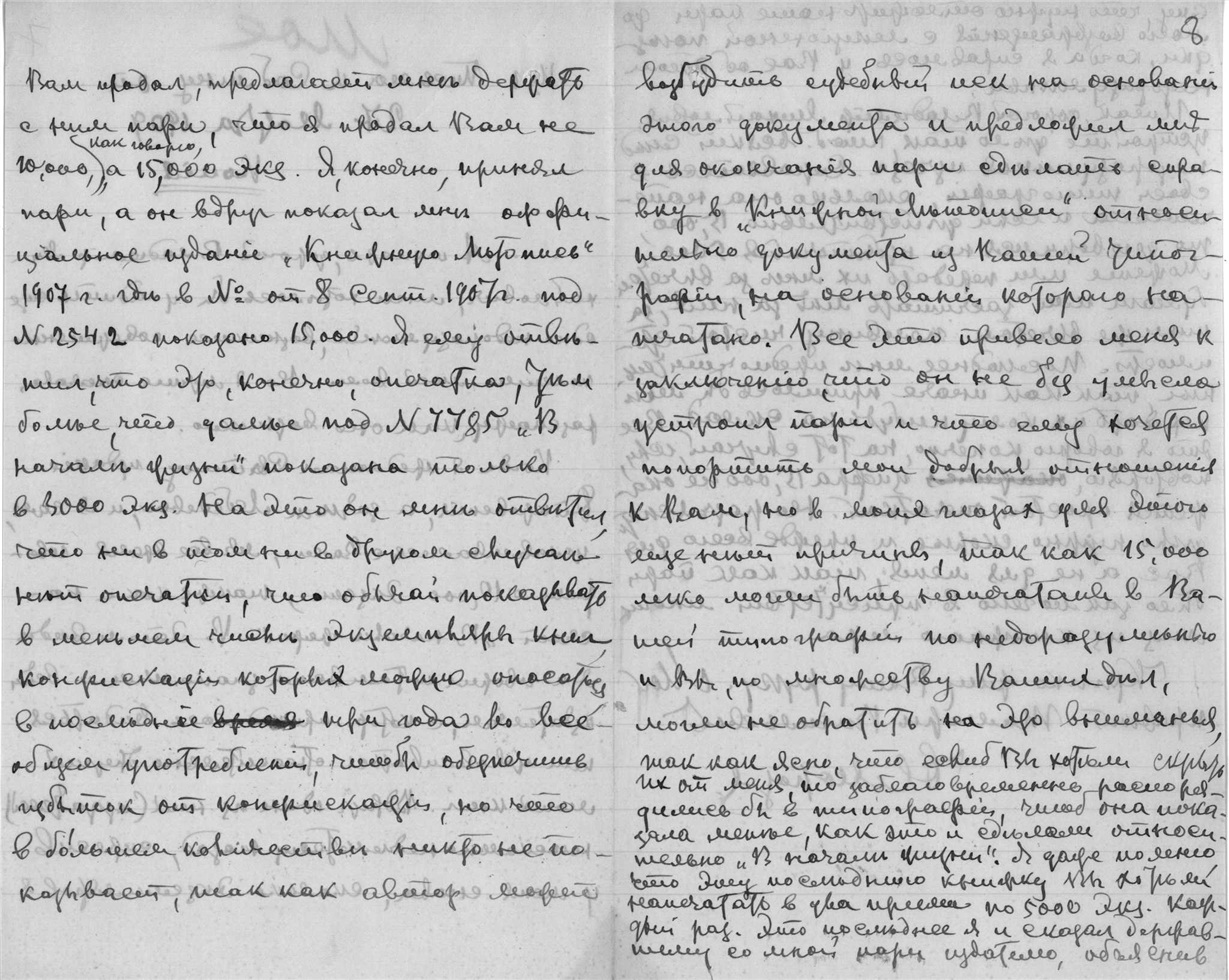 Вам продал, предлагает мнѣ держать
с ним пари, что я продал Вам не
как говорю,
10,000, а 15,000 экз. Я, конечно, принял
пари, а он вдруг показал мнѣ оффи-
ціальное изданіе „Книжную Лѣтопись"
1907 г. гдѣ в № от 8 Сент. 1907 г. под
N 2542 показано 15,000. Я ему отвѣ-
тил, что это, конечно, опечатка, тѣм
болѣе, что далѣе под N 7785 „В
началѣ жизни" показана только
в 3000 экз. На это он мнѣ отвѣтил,
что ни в том ни в другом случаѣ
нѣт опечатки, что обычай показывать
в меньшем числѣ экземпляры книг,
конфискаціи которых можно опасаться
в послѣдніе время три года во все-
общем употребленіи, чтобы обезпечить
избыток от конфискаціи, но что
в большем количествѣ никто не по-
казывает, так как автор может
8
возбудить судебный иск на основаніи
этого документа и предложил мнѣ
для окончанія пари сдѣлать спра-
вку в „Книжной Лѣтописи" относи-
тельно документа из Вашей Типог-
рафіи, на основаніи котораго на-
печатано. Все это привело меня к
заключенію, что он не без умысла
устроил пари и что ему хочется
попортить мои добрыя отношенія
к Вам, но в моих глазах для этого
еще нѣт причины, так как 15,000
легко могли быть напечатаны в Ва-
шей типографіи по недоразумѣнію
и Вы, по множеству Ваших дѣл,
могли не обратить на это вниманья,
так как ясно, что еслиб Вы хотѣли скрыть
их от меня, то заблаговременно распоря-
дились бы в типографіи, чтоб она пока-
зала менѣе, как это и сдѣлали относи-
тельно „В началѣ жизни". Я даже помню
что эту послѣднюю книжку Вы хотѣли
напечатать в два приема по 5000 экз. каж-
дый раз. Это послѣднее я и сказал державше-
му со мной пари издателю, объяснив